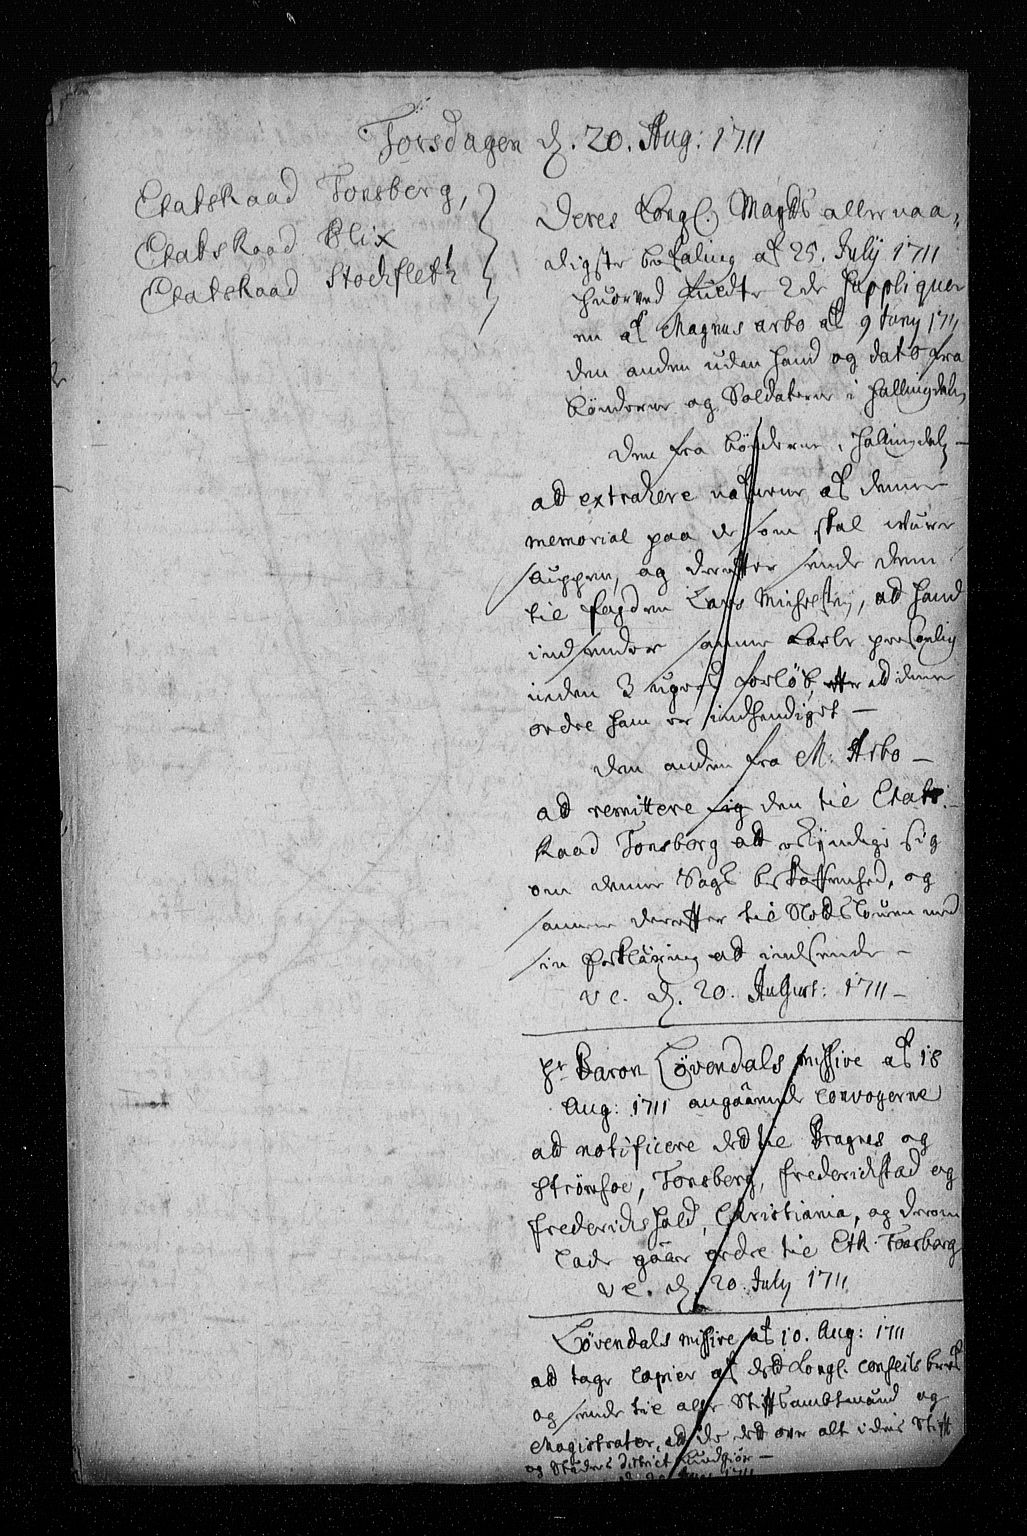 Torsdagen d. 20. Aug: 1711
Etatsraad Tonsberg,
Etatsraad Blix
Etatsraad Stochfleth
Deres Kongl. Maytts allernaa-
digste befaling af 25. July 1711
huorved fuldte 2de suppliquer
en af Magnus Arbo af 9 Juny 1711
den anden uden hand og dato fra
bønderne og Soldaterne i Hallingdal,
Den fra bønderne i Hallingdal -
ad extrahere nafnene af denne
memorial paa de som skal were
sauppen, og derefter sende dem
til fogden Lars Michelsen, ad hand
indsender samme Karle personlig
inden 3 ugers forløb, efter ad denne
ordre ham er indhendiget -
den anden fra M: Arbo -
ad remittere sig den til Etats-
Raad Tonsberg ad erkyndige sig
om denne Sags beskaffenhed, og
samme derefter til Slodsloven med
sin forklaring ad indsende -
ve. d. 20. August: 1711 -
Hr Baron Løvendals missive af 18
Aug: 1711 angaaende convoyerne
ad notificere ded til Bragnes og
Strømsoe, Tonsberg, Frederichstad og
Frederichshald, Christiania, og derom
lade gaae ordre til Etk. Tonsberg
ve. d. 20. July 1711
Løvendals missive af 10. Aug: 1711
ad tage copier af ded Kongl. conseils bref
og sende til alle Stiftsambtmænd og
Magistrater, ad de ded over alt i deris Stift
og Stæders district kundgiør -
1711